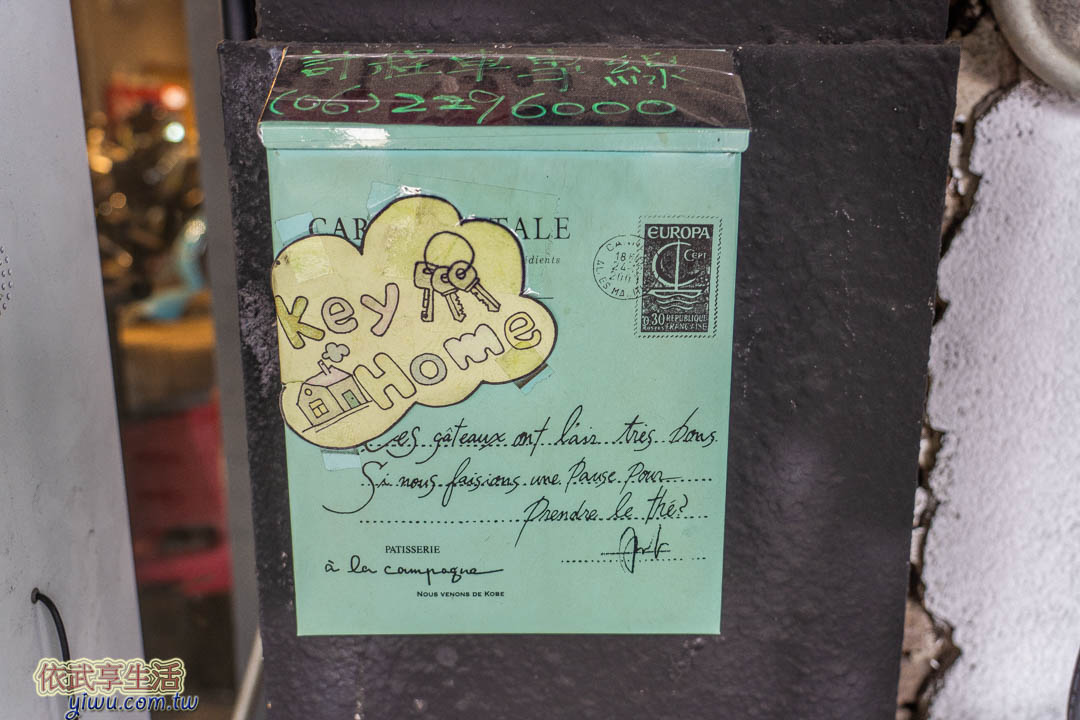 計程車專線
(06)2296000
CAR TALE
édients
EUROPA
CEPT
0,30 REPUBLIQUE
POSTES FRANÇAISE
18
24-
200
Key
Home
Ces gâteaux ont l'air très bons
Si nous faisions une Pause Pour
Prendre le thé?
PATISSERIE
à la campagne
NOUS VENONS DE KOBE
依武享生活
yiwu.com.tw